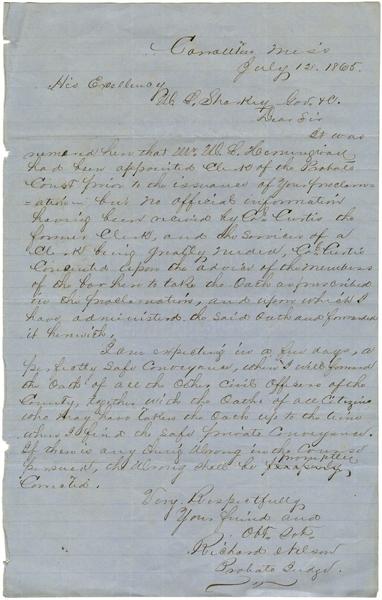 Carrollton Miss
July 12. 1865.
His Excellency
W. L. Sharkey Gov. &C.
Dear Sir
It was
rumored here that Mr. W. L. Hemingway
had been appointed Clerk of the Probate
Court prior to the issuance of Your proclam-
=ation but no official information
having been recived by Curtis the
former Clerk, and the services of a
Clerk being greatly needed, Curtis
Concented upon the advice of the members
of the bar here to take the Oath as prescribed
in the Proclamation, and upon which I
have administered the said Oath and forwarded
it herewith.
I am expecting in a few days, a
perfectly safe Conveyance, when I will forward
the Oath of all the Other Civil Officers of the
County, together with the Oaths of all Citizens
who may have taken the Oath up to the time
when I find the safe private Conveyance.
If there is any thing wrong in the Course
pursued, the wrong shall be promptly
Corrected.
Very Respectfully
Your friend and
Obt. Svt.
Richard Nelson
Probate Judge.